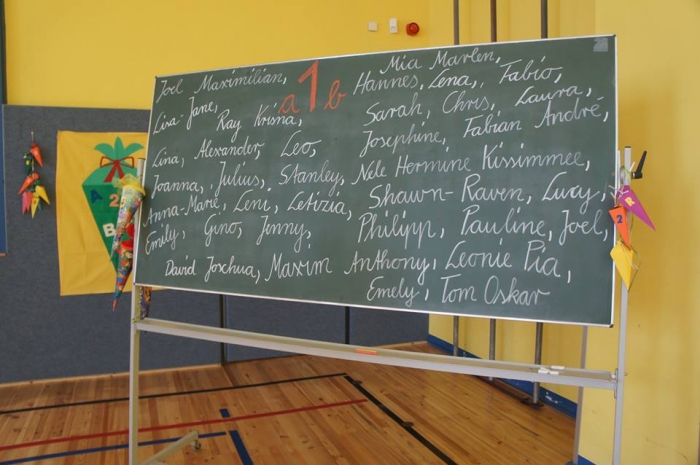 a 1 b
Joel Maximilian,
Lisa-Jane,
Ray Krisna,
Lina, Alexander, Leo,
Joanna, Julius, Stanley,
Anna-Marie, Leni, Letizia,
Emily, Gino, Jenny,
David Joschua, Maxim
Mia Marlen,
Hannes, Lena, Fabio,
Sarah, Chris, Laura,
Josephine, Fabian André,
Nele Hermine Kissimmee,
Shawn-Raven, Lucy,
Philipp, Pauline, Joel,
Anthony, Leonie Pia,
Emely, Tom Oskar
A 2
B
R
2